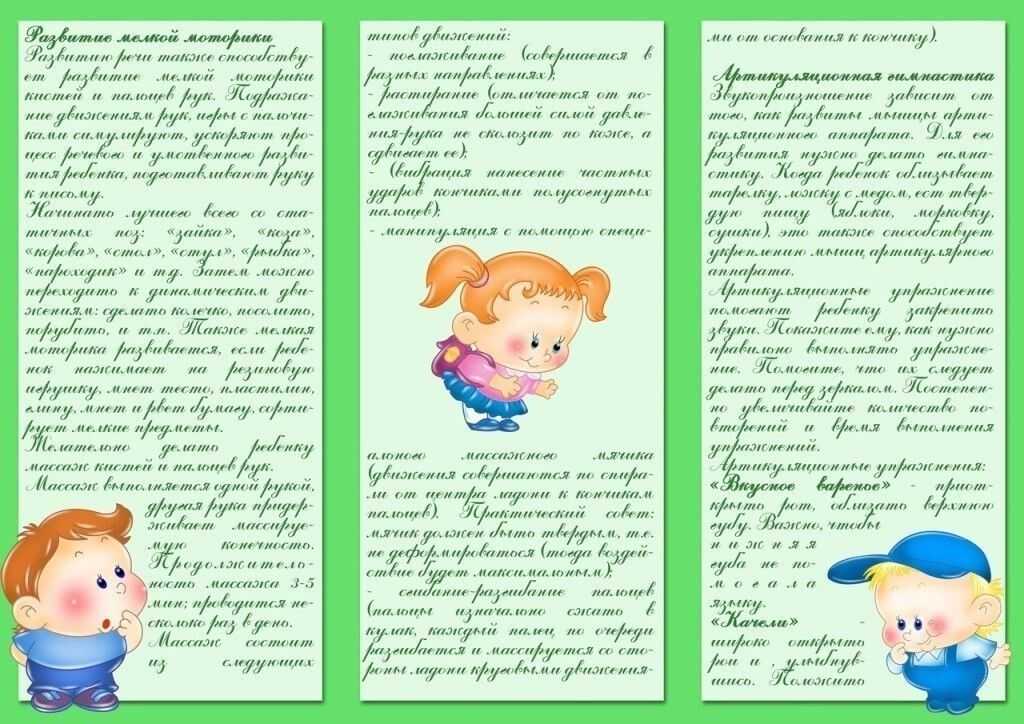 Развитие мелкой моторики
Развитию речи также способству-
ет развитие мелкой моторики
кистей и пальцев рук. Подража-
ние движениям рук, игры с пальчи-
ками симулируют, ускоряют про-
цесс речевого и умственного разви-
тия ребенка, подготавливают руку
к письму.
Начинать лучшего всего со ста-
тичных поз: «зайка», «коза»,
«корова», «стол», «стул», «рыбка»,
«пароходик» и т.д. Затем можно
переходить к динамическим дви-
жениям: сделать колечко, посолить,
порубить, и т.п. Также мелкая
моторика развивается, если ребе-
нок нажимает на резиновую
игрушку, мнет тесто, пластилин,
глину, мнет и рвет бумагу, сорти-
рует мелкие предметы.
Желательно делать ребенку
массаж кистей и пальцев рук.
Массаж выполняется одной рукой,
другая рука придер-
живает массируе-
мую конечность.
Продолжитель-
ность массажа 3-5
мин; проводится не-
сколько раз в день.
Массаж состоит
из следующих
типов движений:
- поглаживание (совершается в
разных направлениях);
- растирание (отличается от по-
глаживания большей силой давле-
ния-рука не скользит по коже, а
сдвигает ее);
- (вибрация нанесение частных
ударов кончиками полусогнутых
пальцев);
- манипуляция с помощью специ-
ального массажного мячика
(движения совершаются по спира-
ли от центра ладони к кончикам
пальцев). Практический совет:
мячик должен быть твердым, т.е.
не деформироваться (тогда воздей-
ствие будет максимальным);
- сгибание-разгибание пальцев
(пальцы изначально сжать в
кулак, каждый палец по очереди
разгибается и массируется со сто-
роны ладони круговыми движения-
ми от основания к кончику).
Артикуляционная гимнастика
Звукопроизношение зависит от
того, как развиты мышцы арти-
куляционного аппарата. Для его
развития нужно делать гимна-
стику. Когда ребенок облизывает
тарелку, ложку с медом, ест твер-
дую пищу (яблоки, морковку,
сушки), это также способствует
укреплению мышц артикулярного
аппарата.
Артикуляционные упражнение
помогают ребенку закрепить
звуки. Покажите ему, как нужно
правильно выполнять упражне-
ние. Помогите, что их следует
делать перед зеркалом. Постепен-
но увеличивайте количество по-
вторений и время выполнения
упражнений.
Артикуляционные упражнения:
«Вкусное варенье» - приот-
крыть рот, облизать верхнюю
губу. Важно, чтобы
нижняя
губа не по-
могала
языку.
«Качели» -
широко открыть
рои и , улыбнув-
шись. Положить